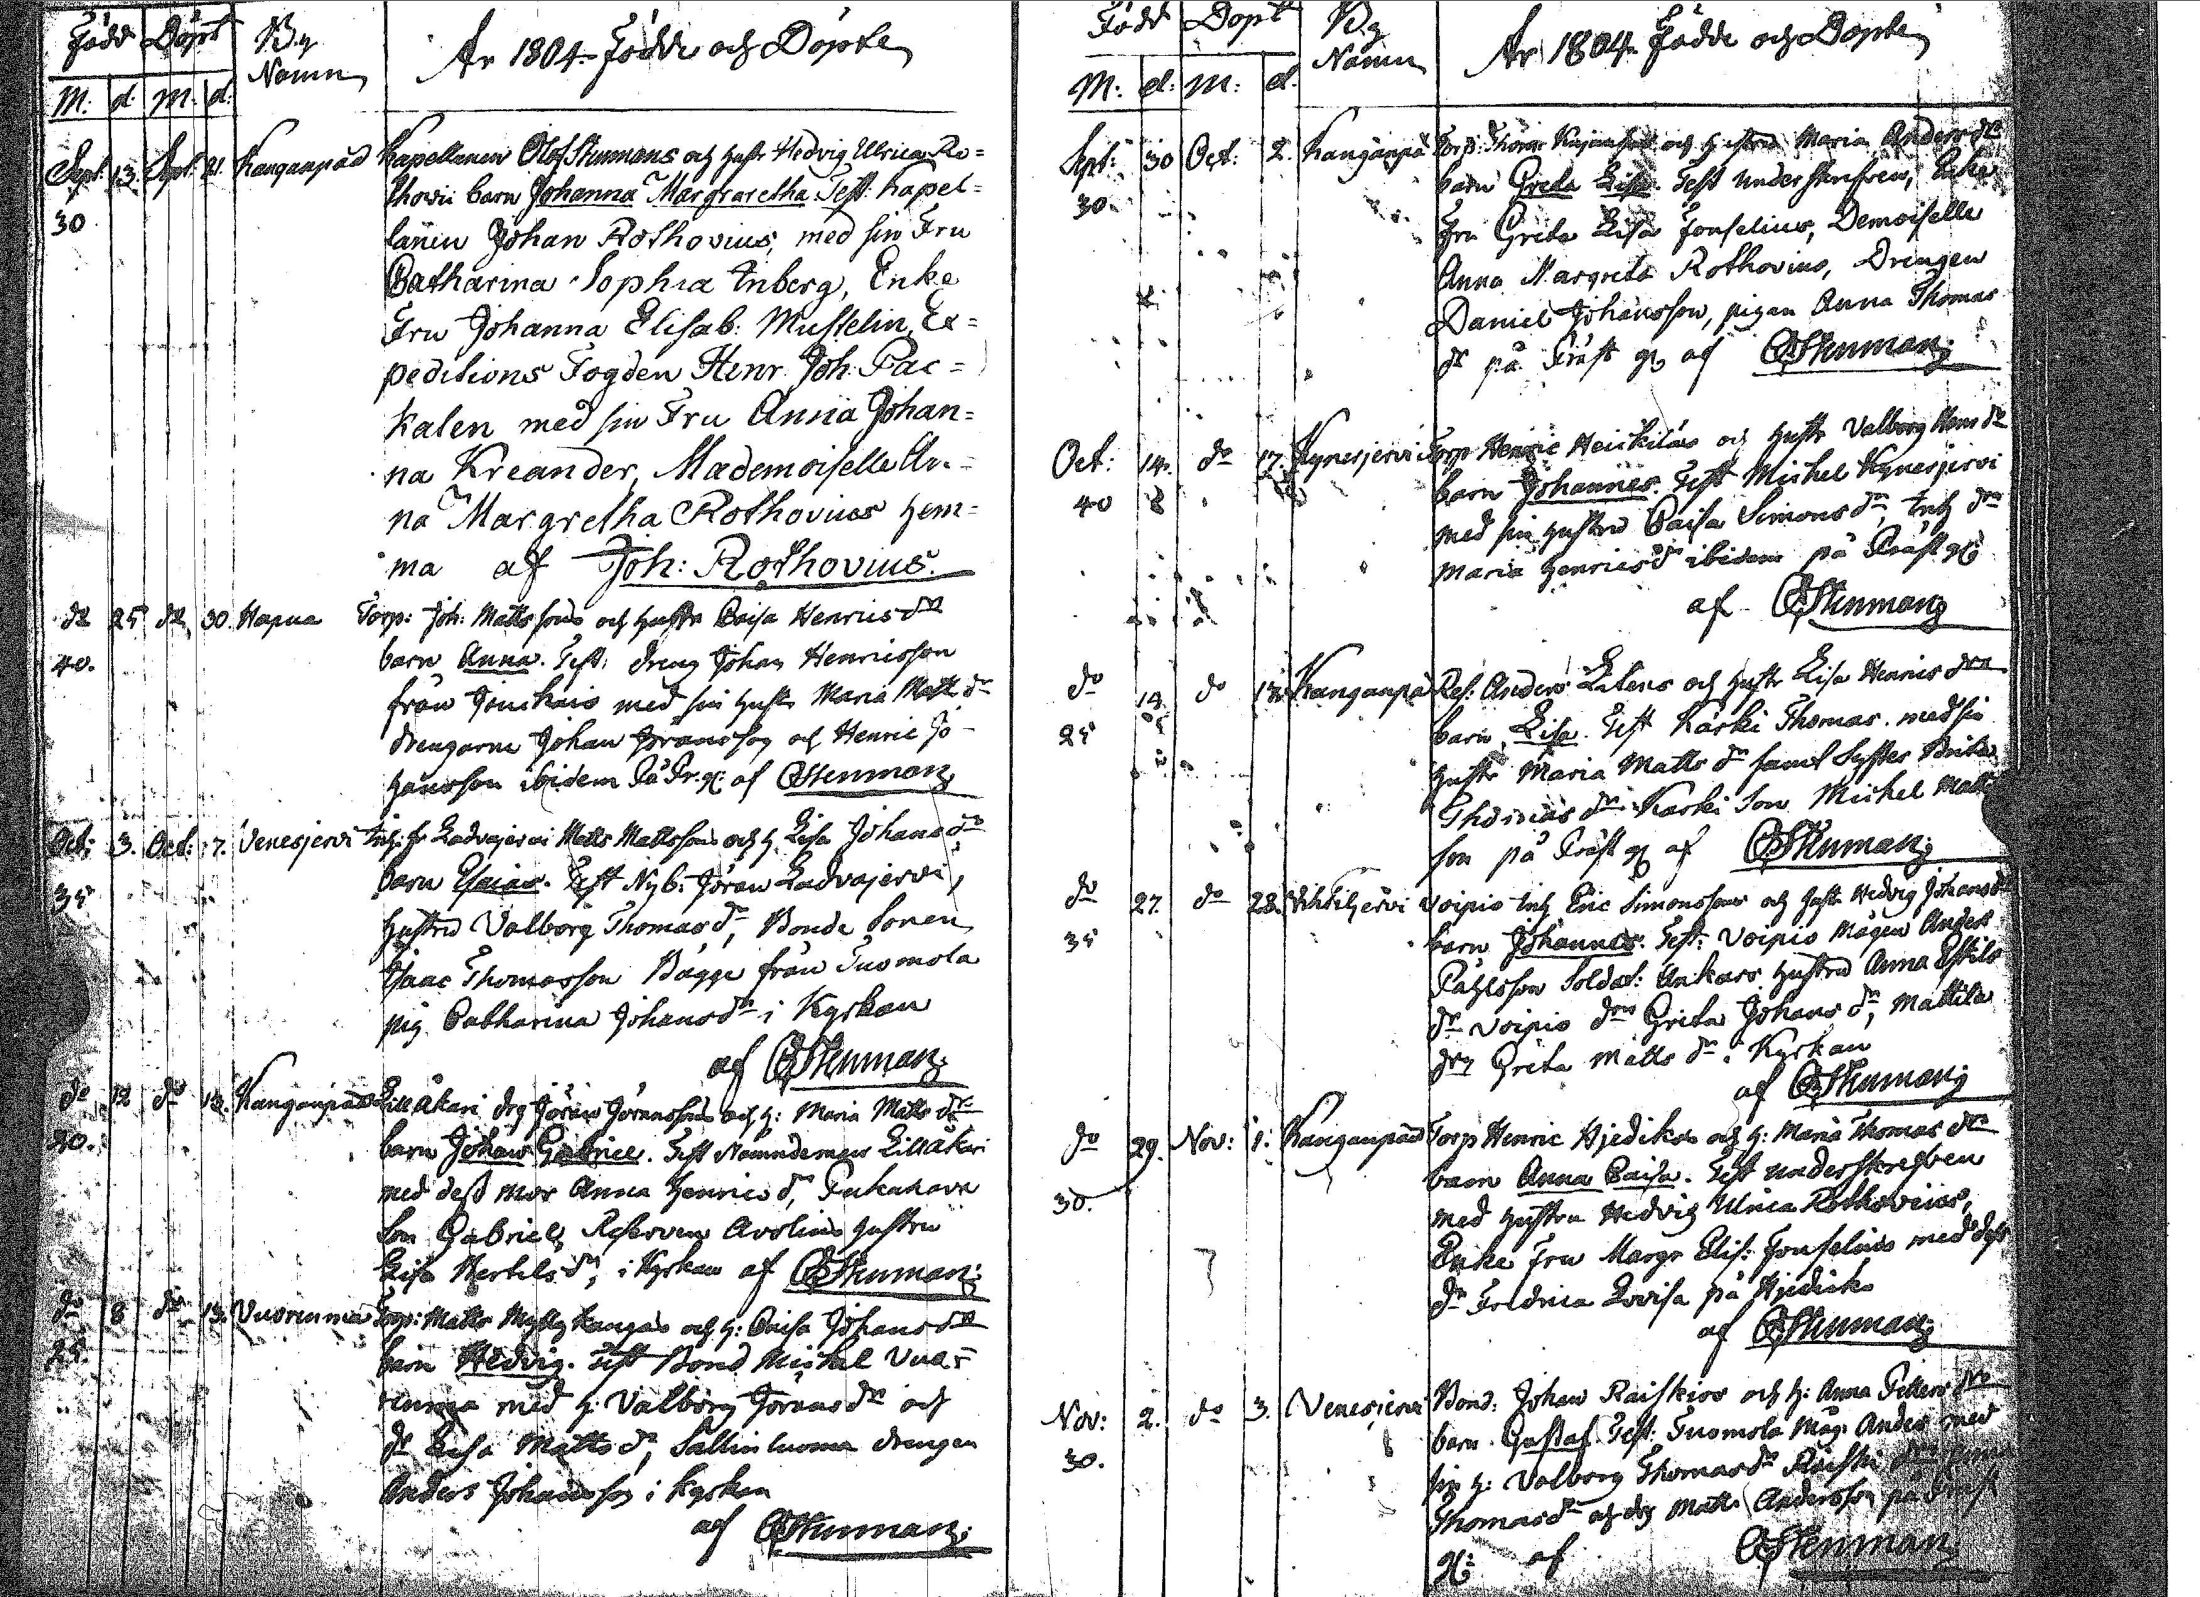 Född Döpt By Namn År 1804 Födde och Döpte
M: d: M: d:
Sept: 13. Sept: 21. Kanganpää Kapellanen Olof Stenmans och hustr Hedvig Ulrica Ro=
30 thovii barn Johanna Margraretha. Test: Kapel=
lanen Johan Rothovius, med sin Fru
Catharina Sophia Enberg, Enke
Fru Johanna Elisab: Mustelin, Ex=
peditions Fogden Henr. Joh. Pac=
kalen med sin Fru Anna Johan=
na Kreander, Mademoiselle An=
na Margretha Rothovius hem=
ma af Joh: Rothovius.
do 25 do 30. Hapua Torp: Joh: Mattssons och hustr Caisa Henricsdr
40. barn Anna. Test: dreng Johan Henricsson
från med sin hustr Maria Matts dr
drengarne Johan Joransson och Henric Jo-
hansson ibidem På Pr. gl: af OStenman
Oct: 3. Oct: 7. Venesjervi Ladvajervi Matts Mattssons och h. Lisa Johansdr
35 barn Esaias. Test Nyb: Jöran Ladvajervi,
hustru Valborg Thomasdr, Bonde Sonen
Isaac Thomasson Bägge från Tuomola
pig Catharina Johansdr i Kyrkan
af OStenman
do 12 do 13. Kanganpää Lilläkari drg Jöran Jöranssons och h: Maria Matts dr
30. barn Johan Gabriel. Test Nämndeman Lilläkari
med dess mor Anna Henrics dr,
Son Gabriel, Reserven hustru
Lisa Bertils dr, i Kyrkan af OStenman
do 8 do 13. Vuorenmaa Torp: Matts Myllykangas och h: Caisa Johans dr
25. barn Hedvig. Test Bond Michel Vuo-
renmaa med h: Valborg Joransdr och
dr Lisa Matts dr, Sallinluoma drengen
Anders Johansson i Kyrkan
af OStenman
Född Döpt By Namn År 1804 Födde och Döpte
M: d: M: d.
Sept: 30 Oct: 2. Kanganpä Torp: Thomas och hustru Maria Anders dr
30. barn Greta Lisa. Test underskrifven, Enke
Fru Greta Lisa Fonselius, Demoiselle
Anna Margreta Rothovius, Drengen
Daniel Johansson, pigan Anna Thomas
dr på Präst gl. af OStenman
Oct: 14. do 17. Kynesjervi Torp Henric Heickiläs och hustr Valborg Hens dr
40 barn Johannes. Test Michel Kynesjervi
med sin hustru Caisa Simons dr, Inh drn
Maria Henricsd ibidem på Präst gl
af OStenman
do 14. do Kanganpä Res: Anders och hustr Lisa Henrics dr
25 barn Lisa. Test Kärki Thomas med sin
hustr Maria Matts dr samt Syster Brita
Thomas dr Karki Son Michel Matts
son på Präst gl af OStenman
do 27. do 28. Vihteljervi Voipio Inh Eric Simonssons och hustr Hedvig Johansdr
35 barn Johannes. Test: Voipio Mågen Anders
Påhlsson Soldat: Ankars hustru Anna Eskils
dr Voipio drn Greta Johans dr, Mattila
drn Greta Matts dr i Kyrkan
af OStenman
do 29. Nov: 1. Kanganpää Torp Henric Hjedikos och h: Maria Thomas dr
30. barn Anna Caisa. Test underskrefven
med hustru Hedvig Ulrica Rothovius,
Enke Fru Margr Elis: Fonselius med dess
dr Fredrica Lovisa på Hjediko
af OStenman
Nov: 2. do 3. Venesjervi Bond: Johan Raiskios och h: Anna Petters dr
30. barn Gustaf. Test: Tuomola Måg Anders med
sin h: Valborg Thomasdr Raiski
Thomasdr och drg Matts Andersson på Präst
gl: af OStenman